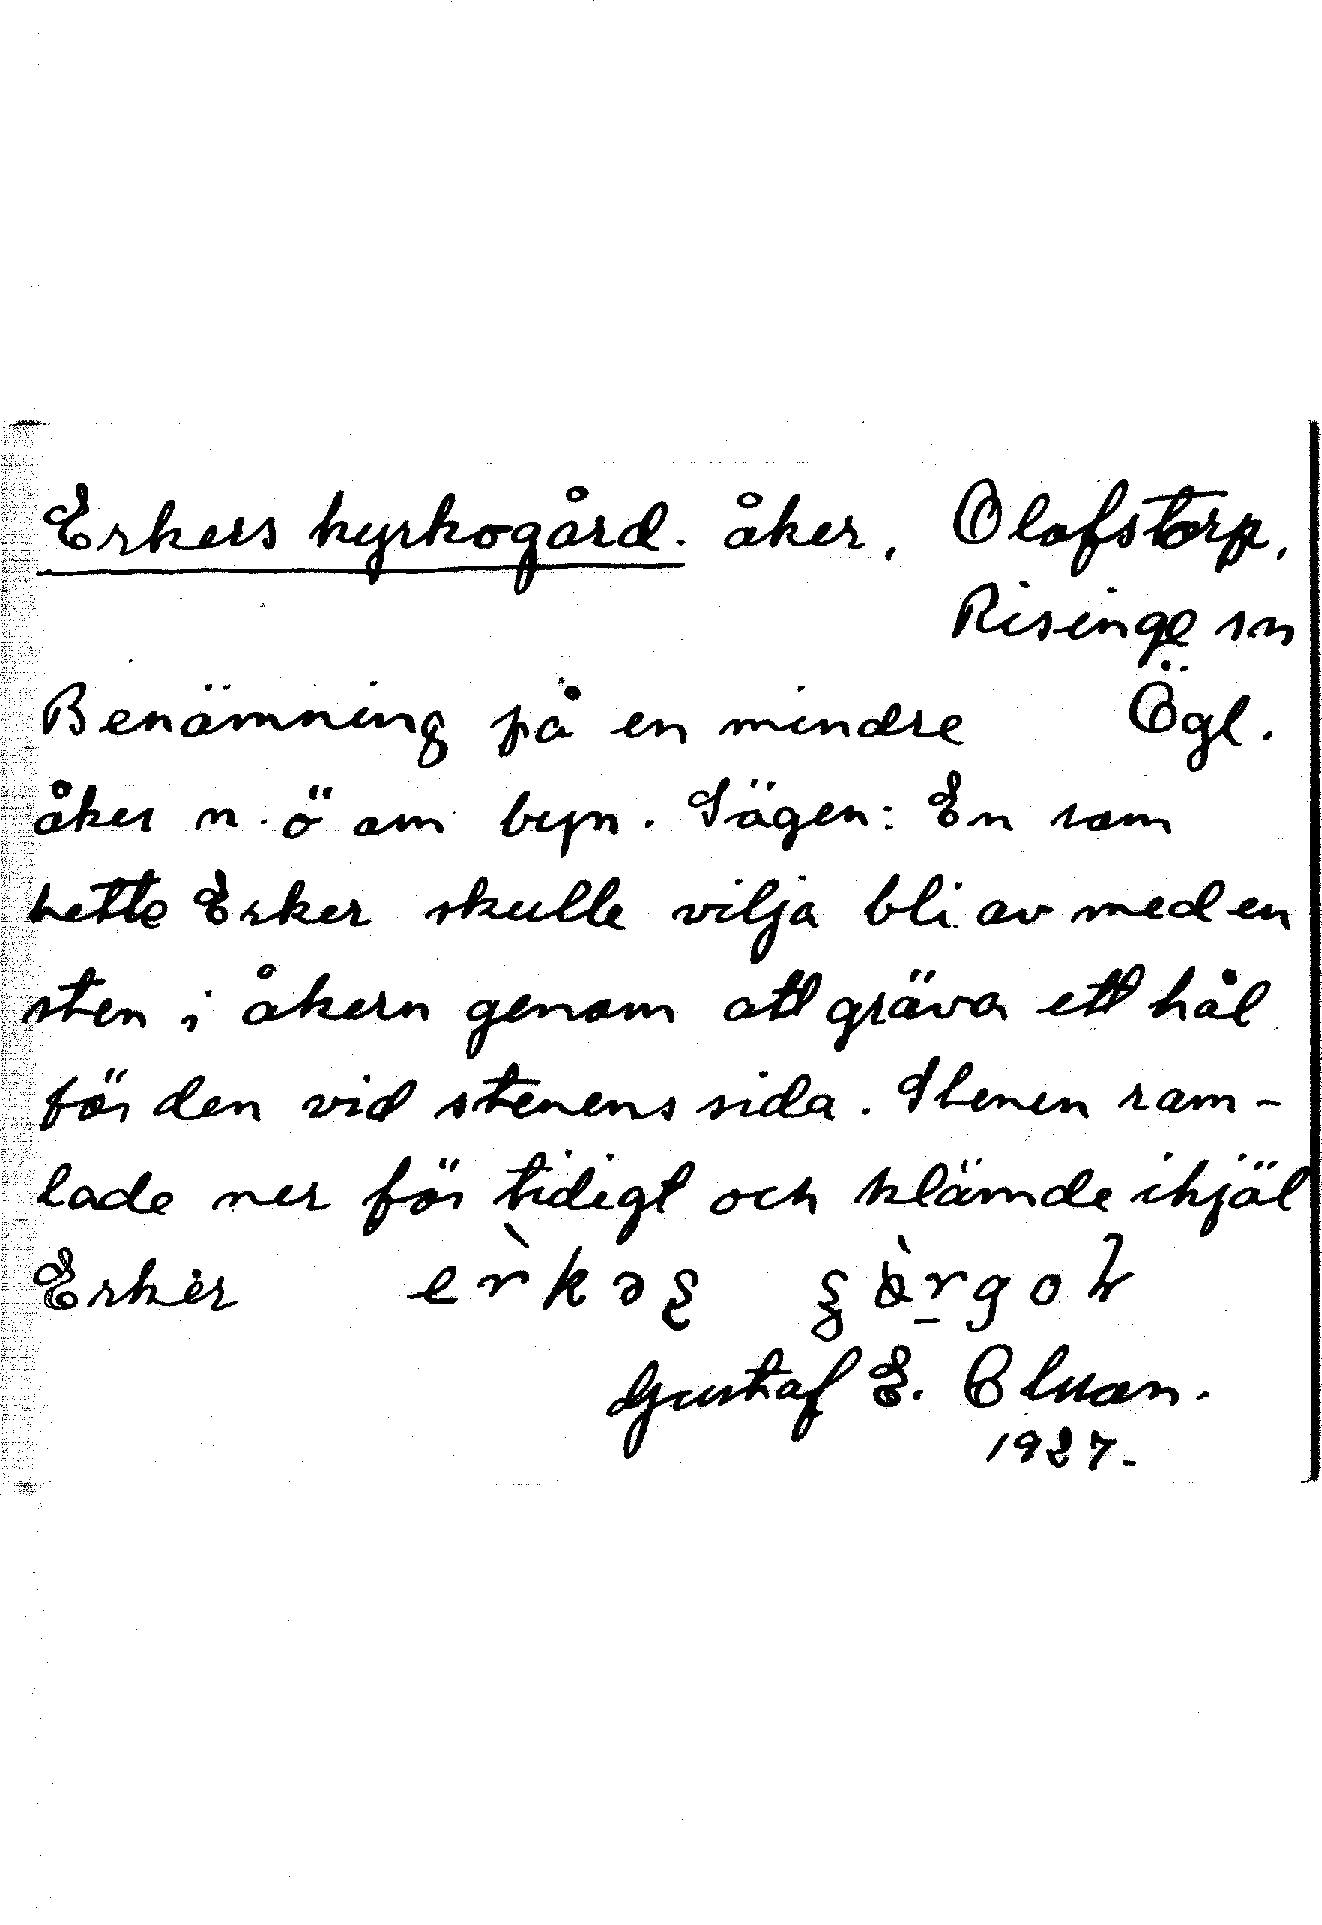 Erkers kyrkogård. åker, Olofstorp,
Risinge sn
Benämning på en mindre Ögl.
åker n. ö om byn. Sägen: En som
hette Erker skulle vilja bli av med en
sten i åkern genom att gräva ett hål
för den vid stenens sida. Stenen ram-
lade ner för tidigt och klämde ihjäl
Erker
Gustaf E.
1927.